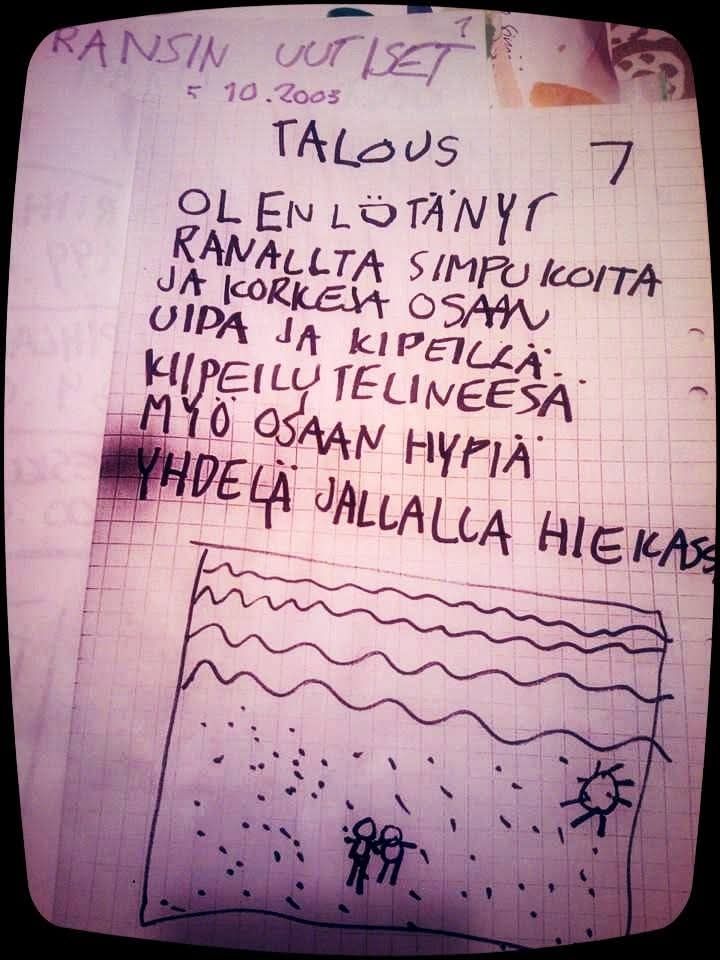 RANSIN UUTISET 1
5 10.2003
TALOUS 7
OLEN LÖTÄNYT
RANALLTA SIMPUKOITA
JA KORKEJA OSAAN
UIDA JA KIPEILLÄ
KIIPEILUTELINEESÄ
MYÖ OSAAN HYPIÄ
YHDELÄ JALLALLA HIEKASS